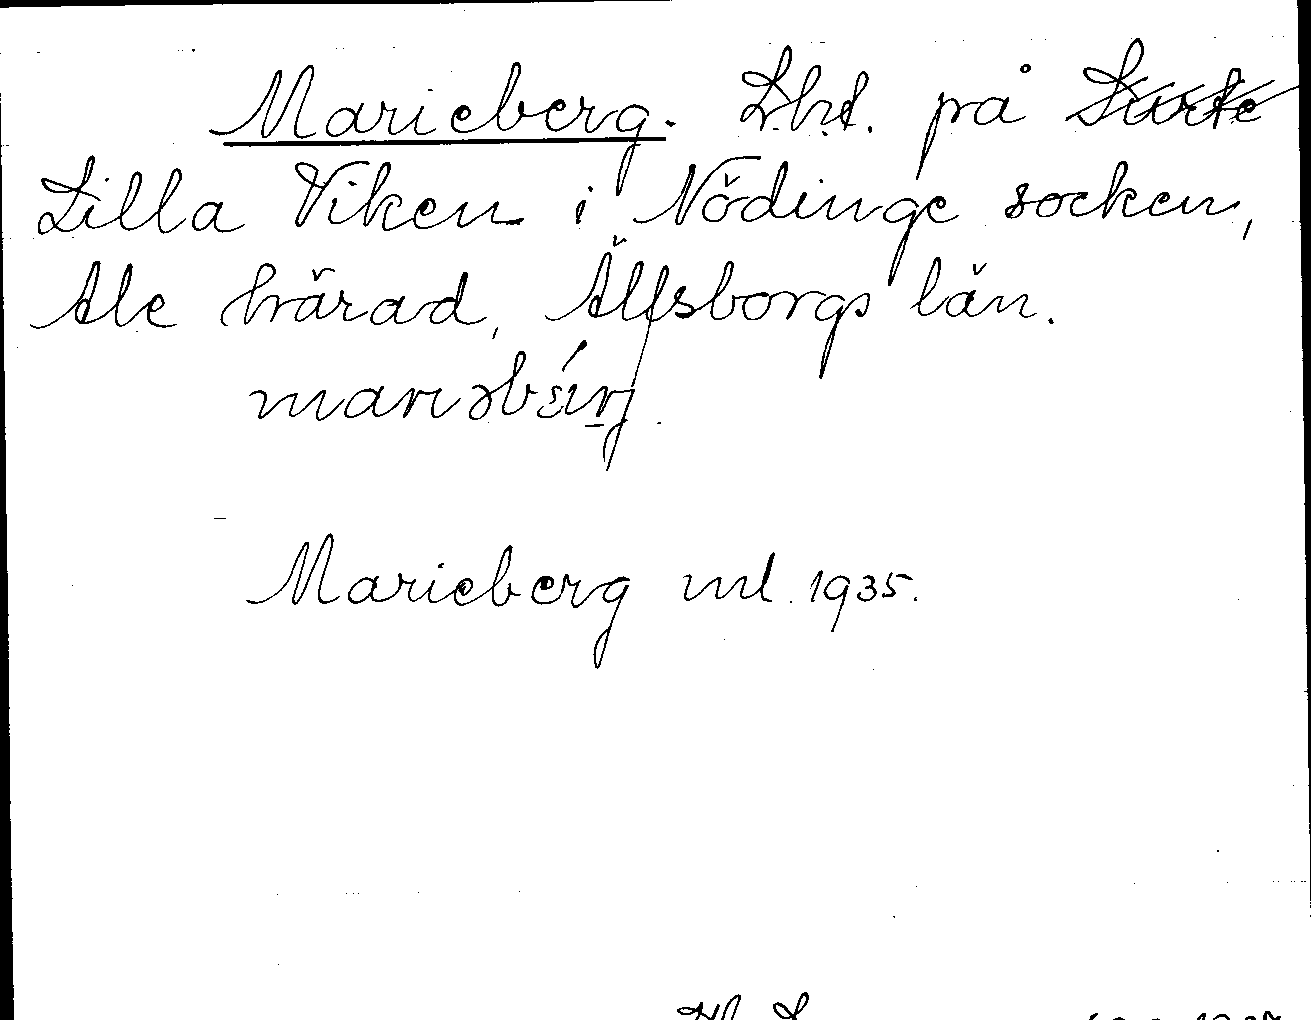 Marieberg. Lht. på Surte
Lilla Viken i Nödinge socken,
Ale härad, Älfsborgs län.
Marieberg ml 1935.